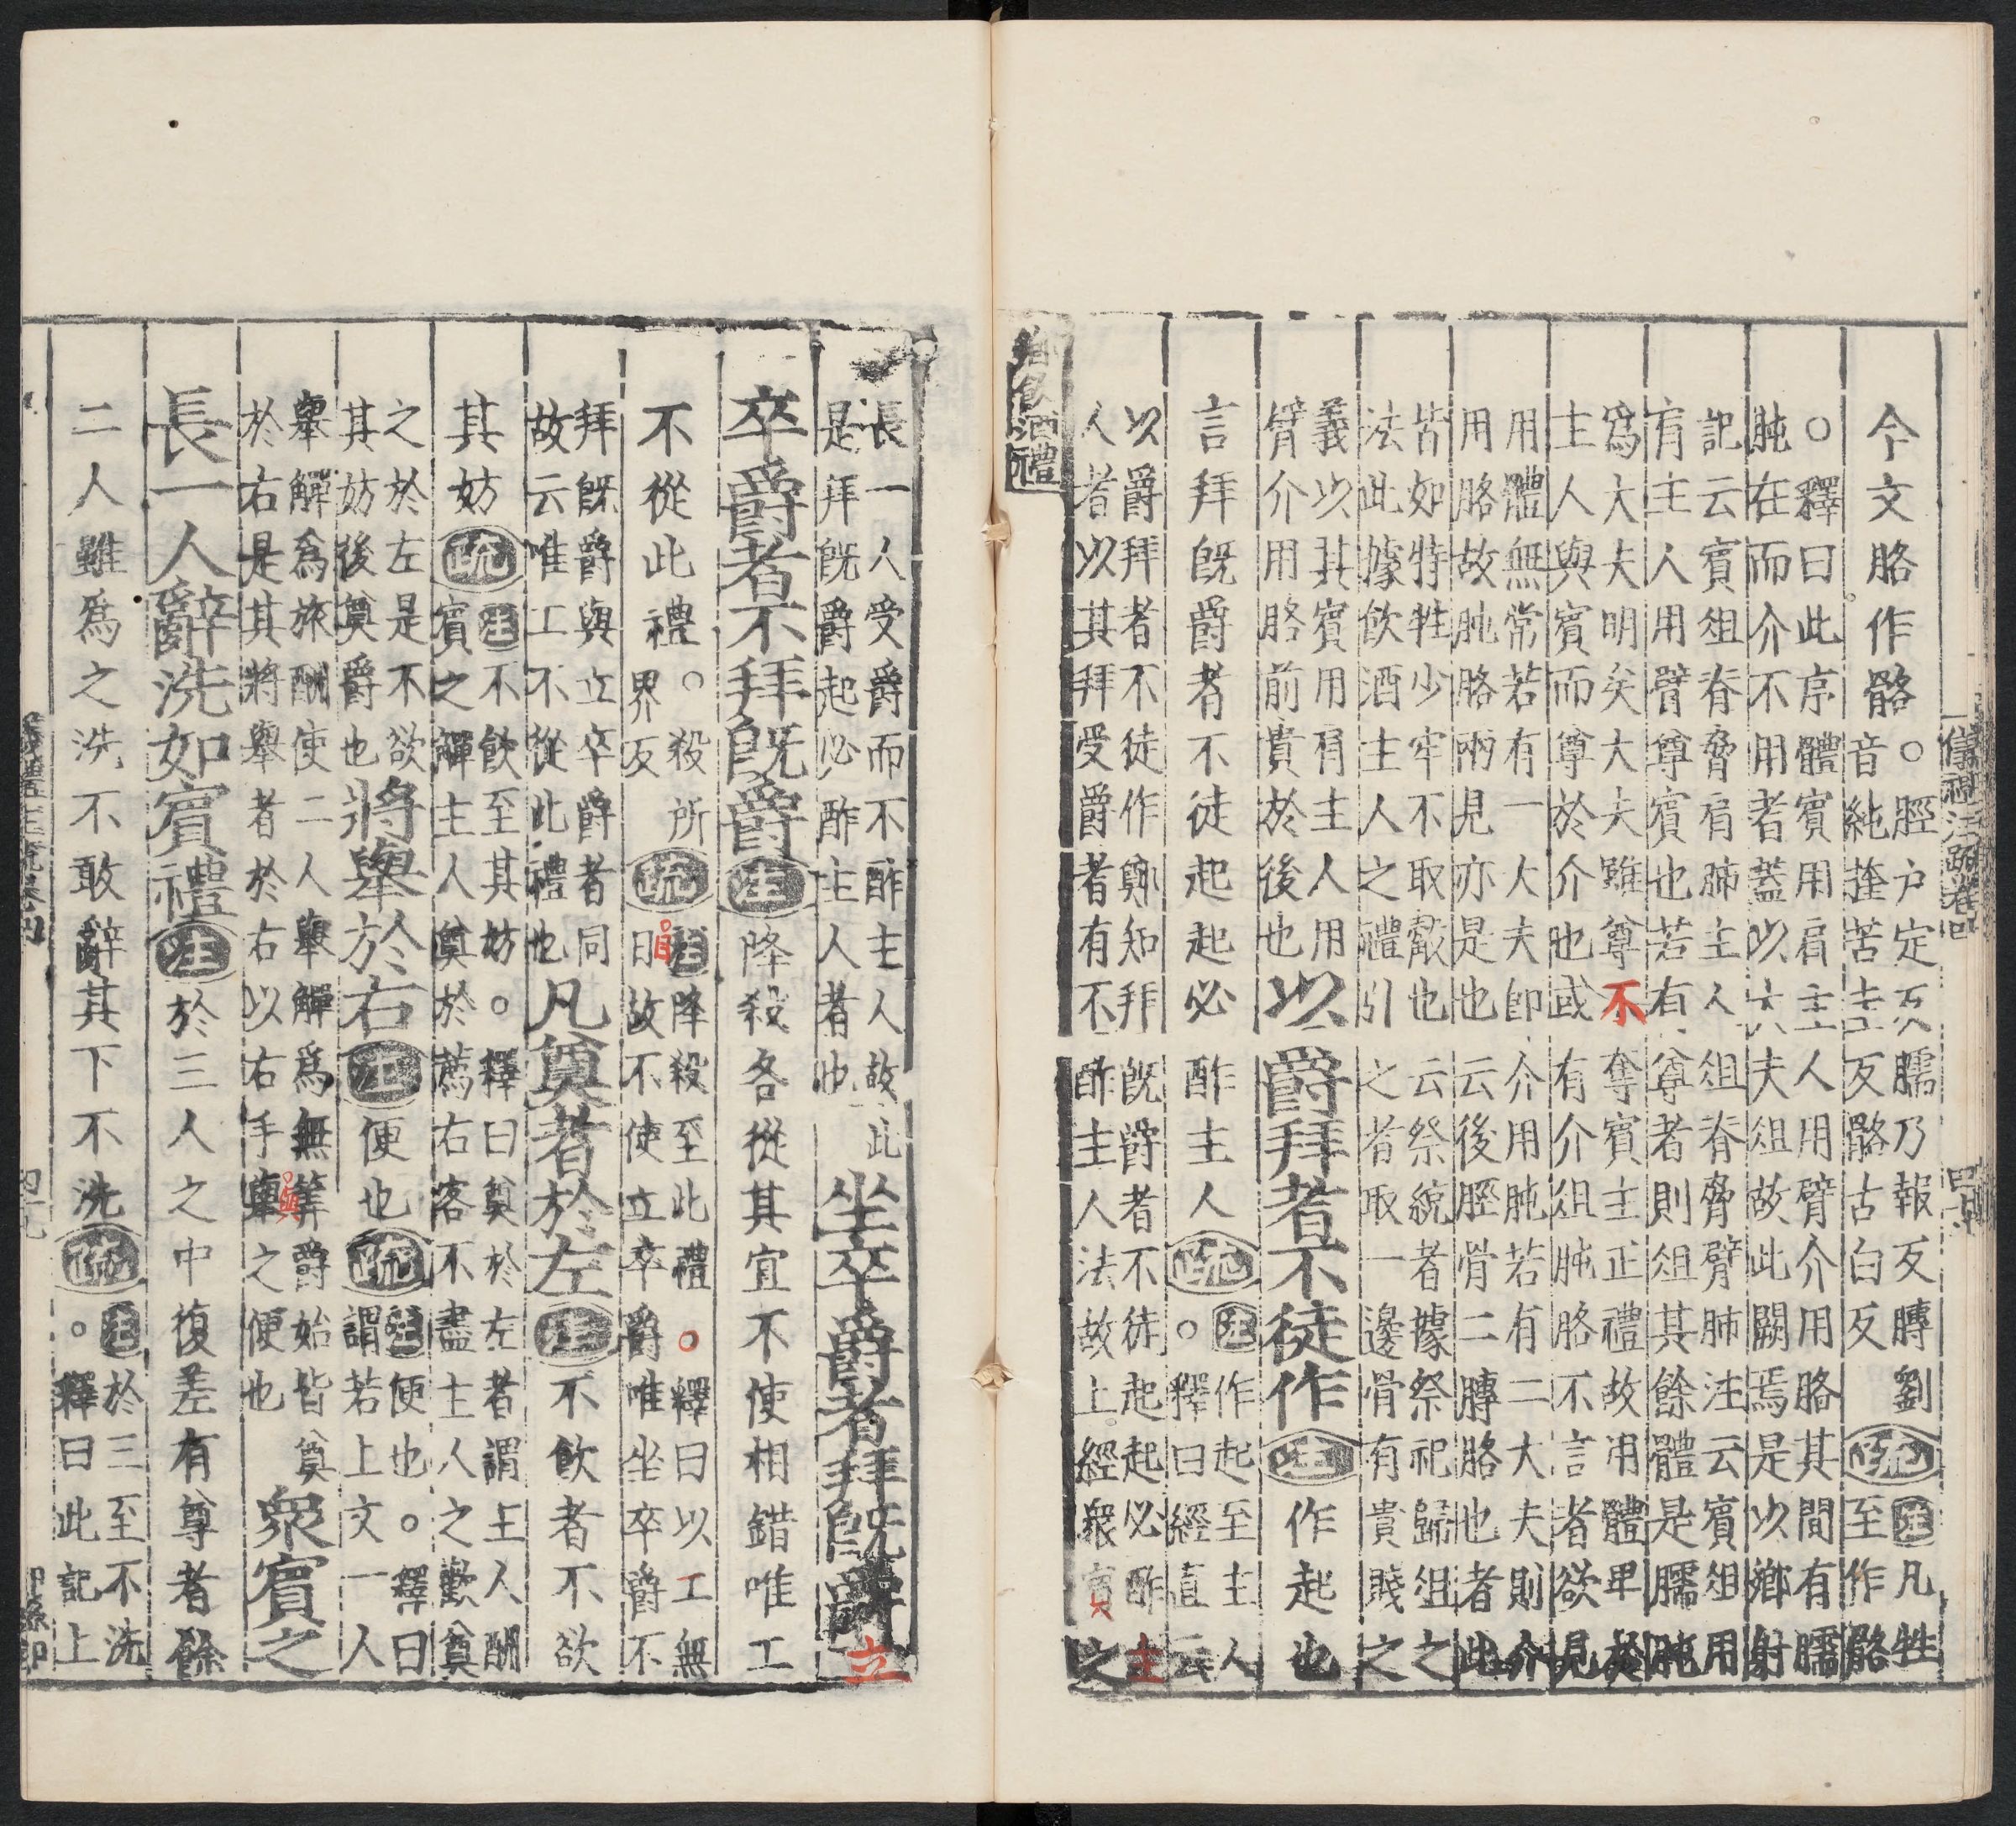 儀禮注疏卷四
今文胳作骼。
脛户定反臑乃報反膊劉
音純苦圭反骼古白反
疏
注凡牲
至作骼
○釋曰此序體賓用肩主人用臂介用胳其間有臑
肫在而介不用者蓋以大夫俎故此闕焉是以鄉射
記云賓俎脊脅肩肺主人俎脊脅臂肺注云賓俎用
肩主人用臂尊賓也若有尊者則俎其餘體是臑肫
爲大夫明矣大夫雖尊不奪賓主正禮故用體卑於
主人與賓而尊於介也或有介俎肫胳不言者欲見
用體無常若有一大夫即介用肫若有二大夫則介
用胳故肫胳兩見亦是也云後脛骨二膊胳也者此
皆如特牲少牢不取觳也云祭統者據祭祀歸俎之
法此據飲酒主人之禮引之者取一邊骨有貴賤之
義以其賓用肩主人用
臂介用胳前貴於後也
以爵拜者不徒作注作起也
言拜既爵者不徒起起必酢主人疏
注作起至主人
○釋曰經直云
以爵拜者不徒作鄭知拜既爵者不徒起起必酢主
人者以其拜受爵者有不酢主人法故上經衆賓之
鄉飲酒禮
長一人受爵而不酢主人故此
是拜既爵起必酢主人者也
坐卒爵者拜既爵立
卒爵者不拜既爵注降殺各從其宜不使相錯唯工
不從此禮。
殺所
界反
疏
注降殺至此禮。釋曰以工無
目故不使立卒爵唯坐卒爵不
拜既爵與立卒爵者同
故云唯工不從此禮也
凡奠者於左注不飲者不欲
其妨疏
注不飲至其妨。釋曰奠於左者謂主人酬
賓之觶主人奠於薦右客不盡主人之歡奠
之於左是不欲
其妨後奠爵也
將舉於右注便也疏
注便也。釋曰
謂若上文一人
舉觶爲旅酬使二人舉觶爲無筭爵始皆奠
於右是其將舉者於右以右手舉之便也
衆賓之
長一人辭洗如賓禮注於三人之中復差有尊者餘
二人雖爲之洗不敢辭其下不洗疏
注於三至不洗
。釋曰此記上